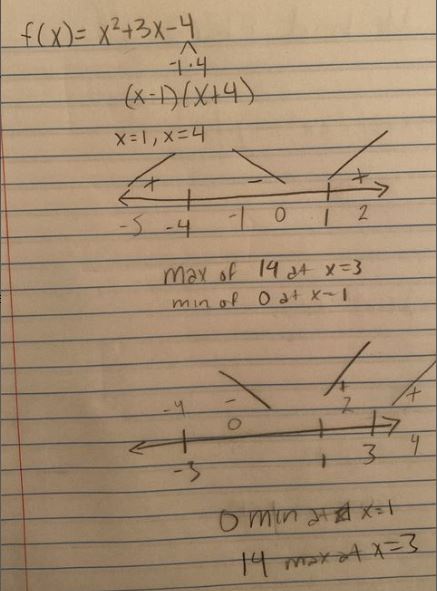 f(x)= x²+3x-4
-1·4
(x-1)(x+4)
x=1, x=4
+ - +
-5 -4 -1 0 1 2
max of 14 at x=3
min of 0 at x=1
-4 - + +
0 2
-3 1 3 4
0 min at x=1
14 max at x=3